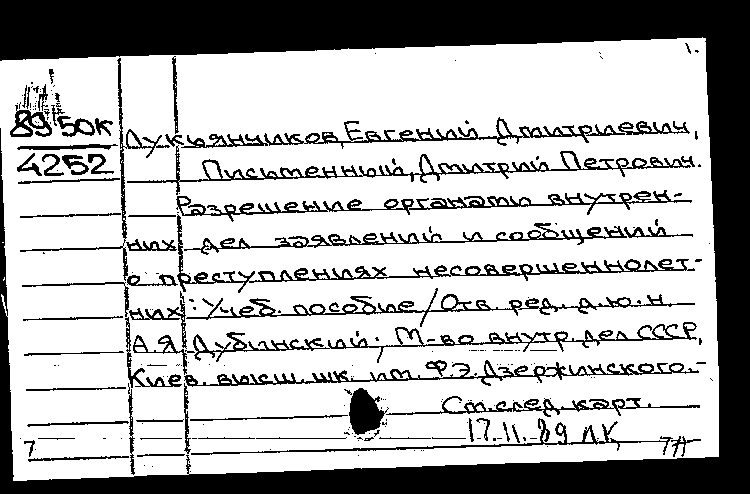 1.
89 50к
4252
Лукьянчиков, Евгений Дмитриевич,
Письменный, Дмитрий Петрович.
Разрешение органами внутрен-
них дел заявлений и сообщений
о преступлениях несовершеннолет-
них: Учеб. пособие / Отв. ред. д.ю.н.
А.Я. Дубинский; М-во внутр. дел СССР,
Киев. высш. шк. им. Ф.Э. Дзержинского.-
См. след. карт.
17.11.89 ЛК
7